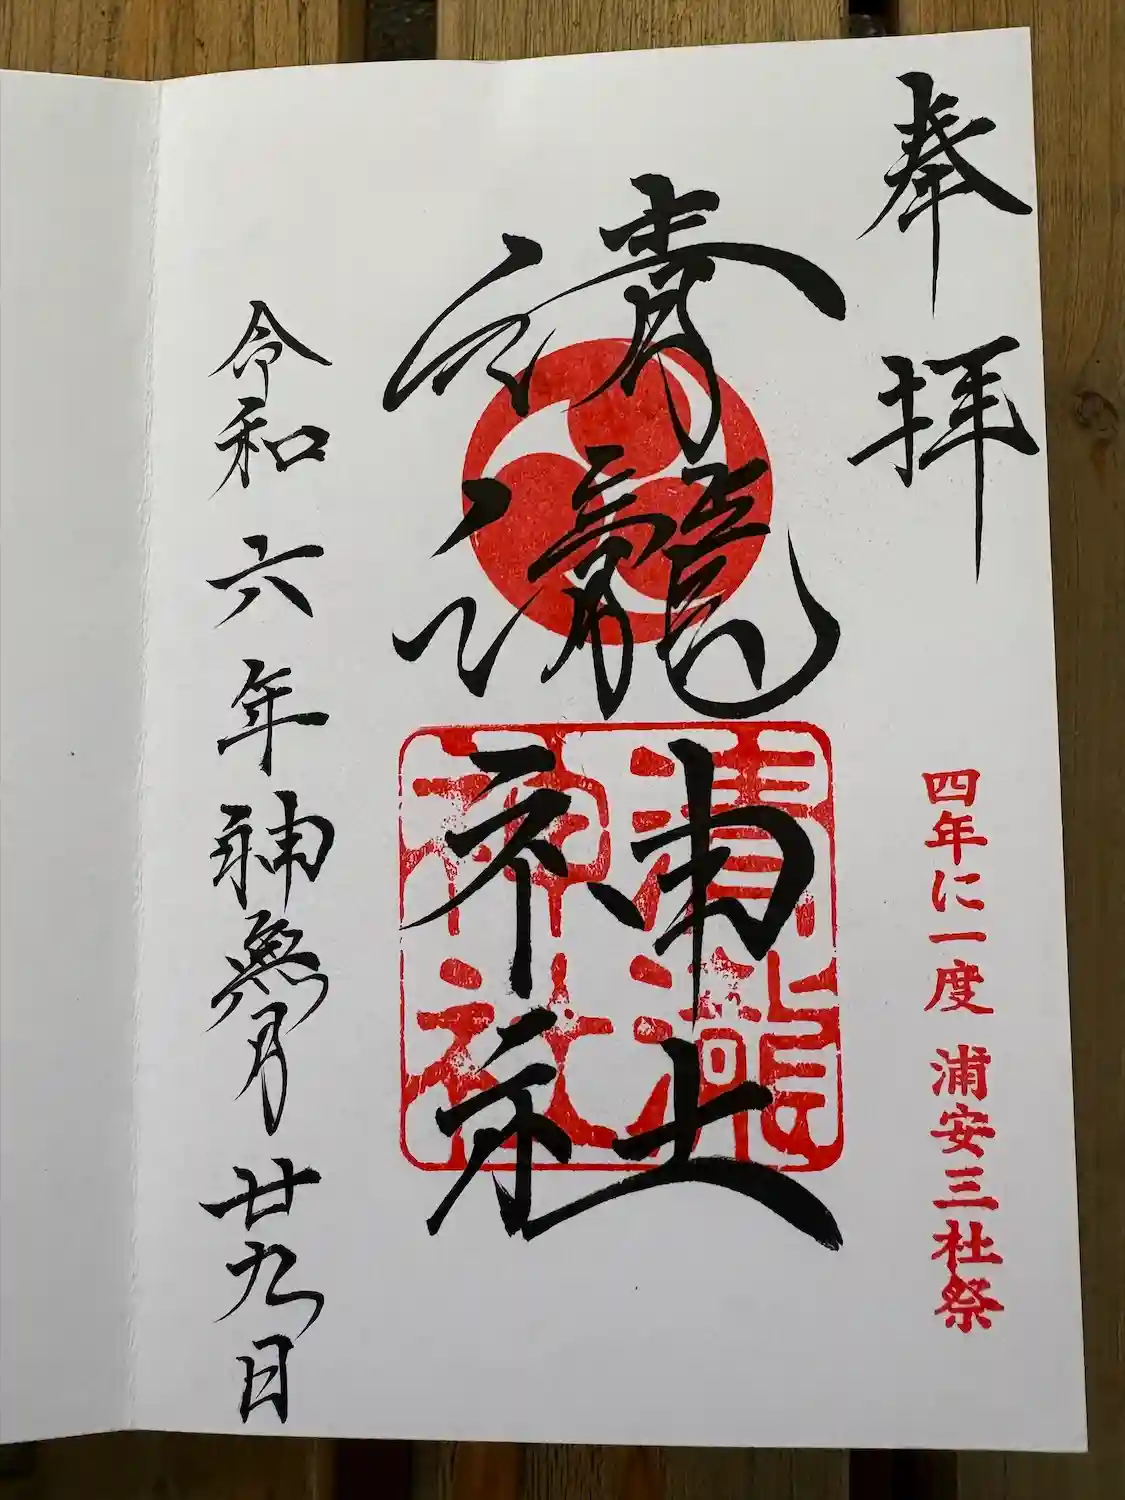 奉拝
四年に一度 浦安三社祭
清瀧神社
清瀧神社
令和六年神無月廿九日